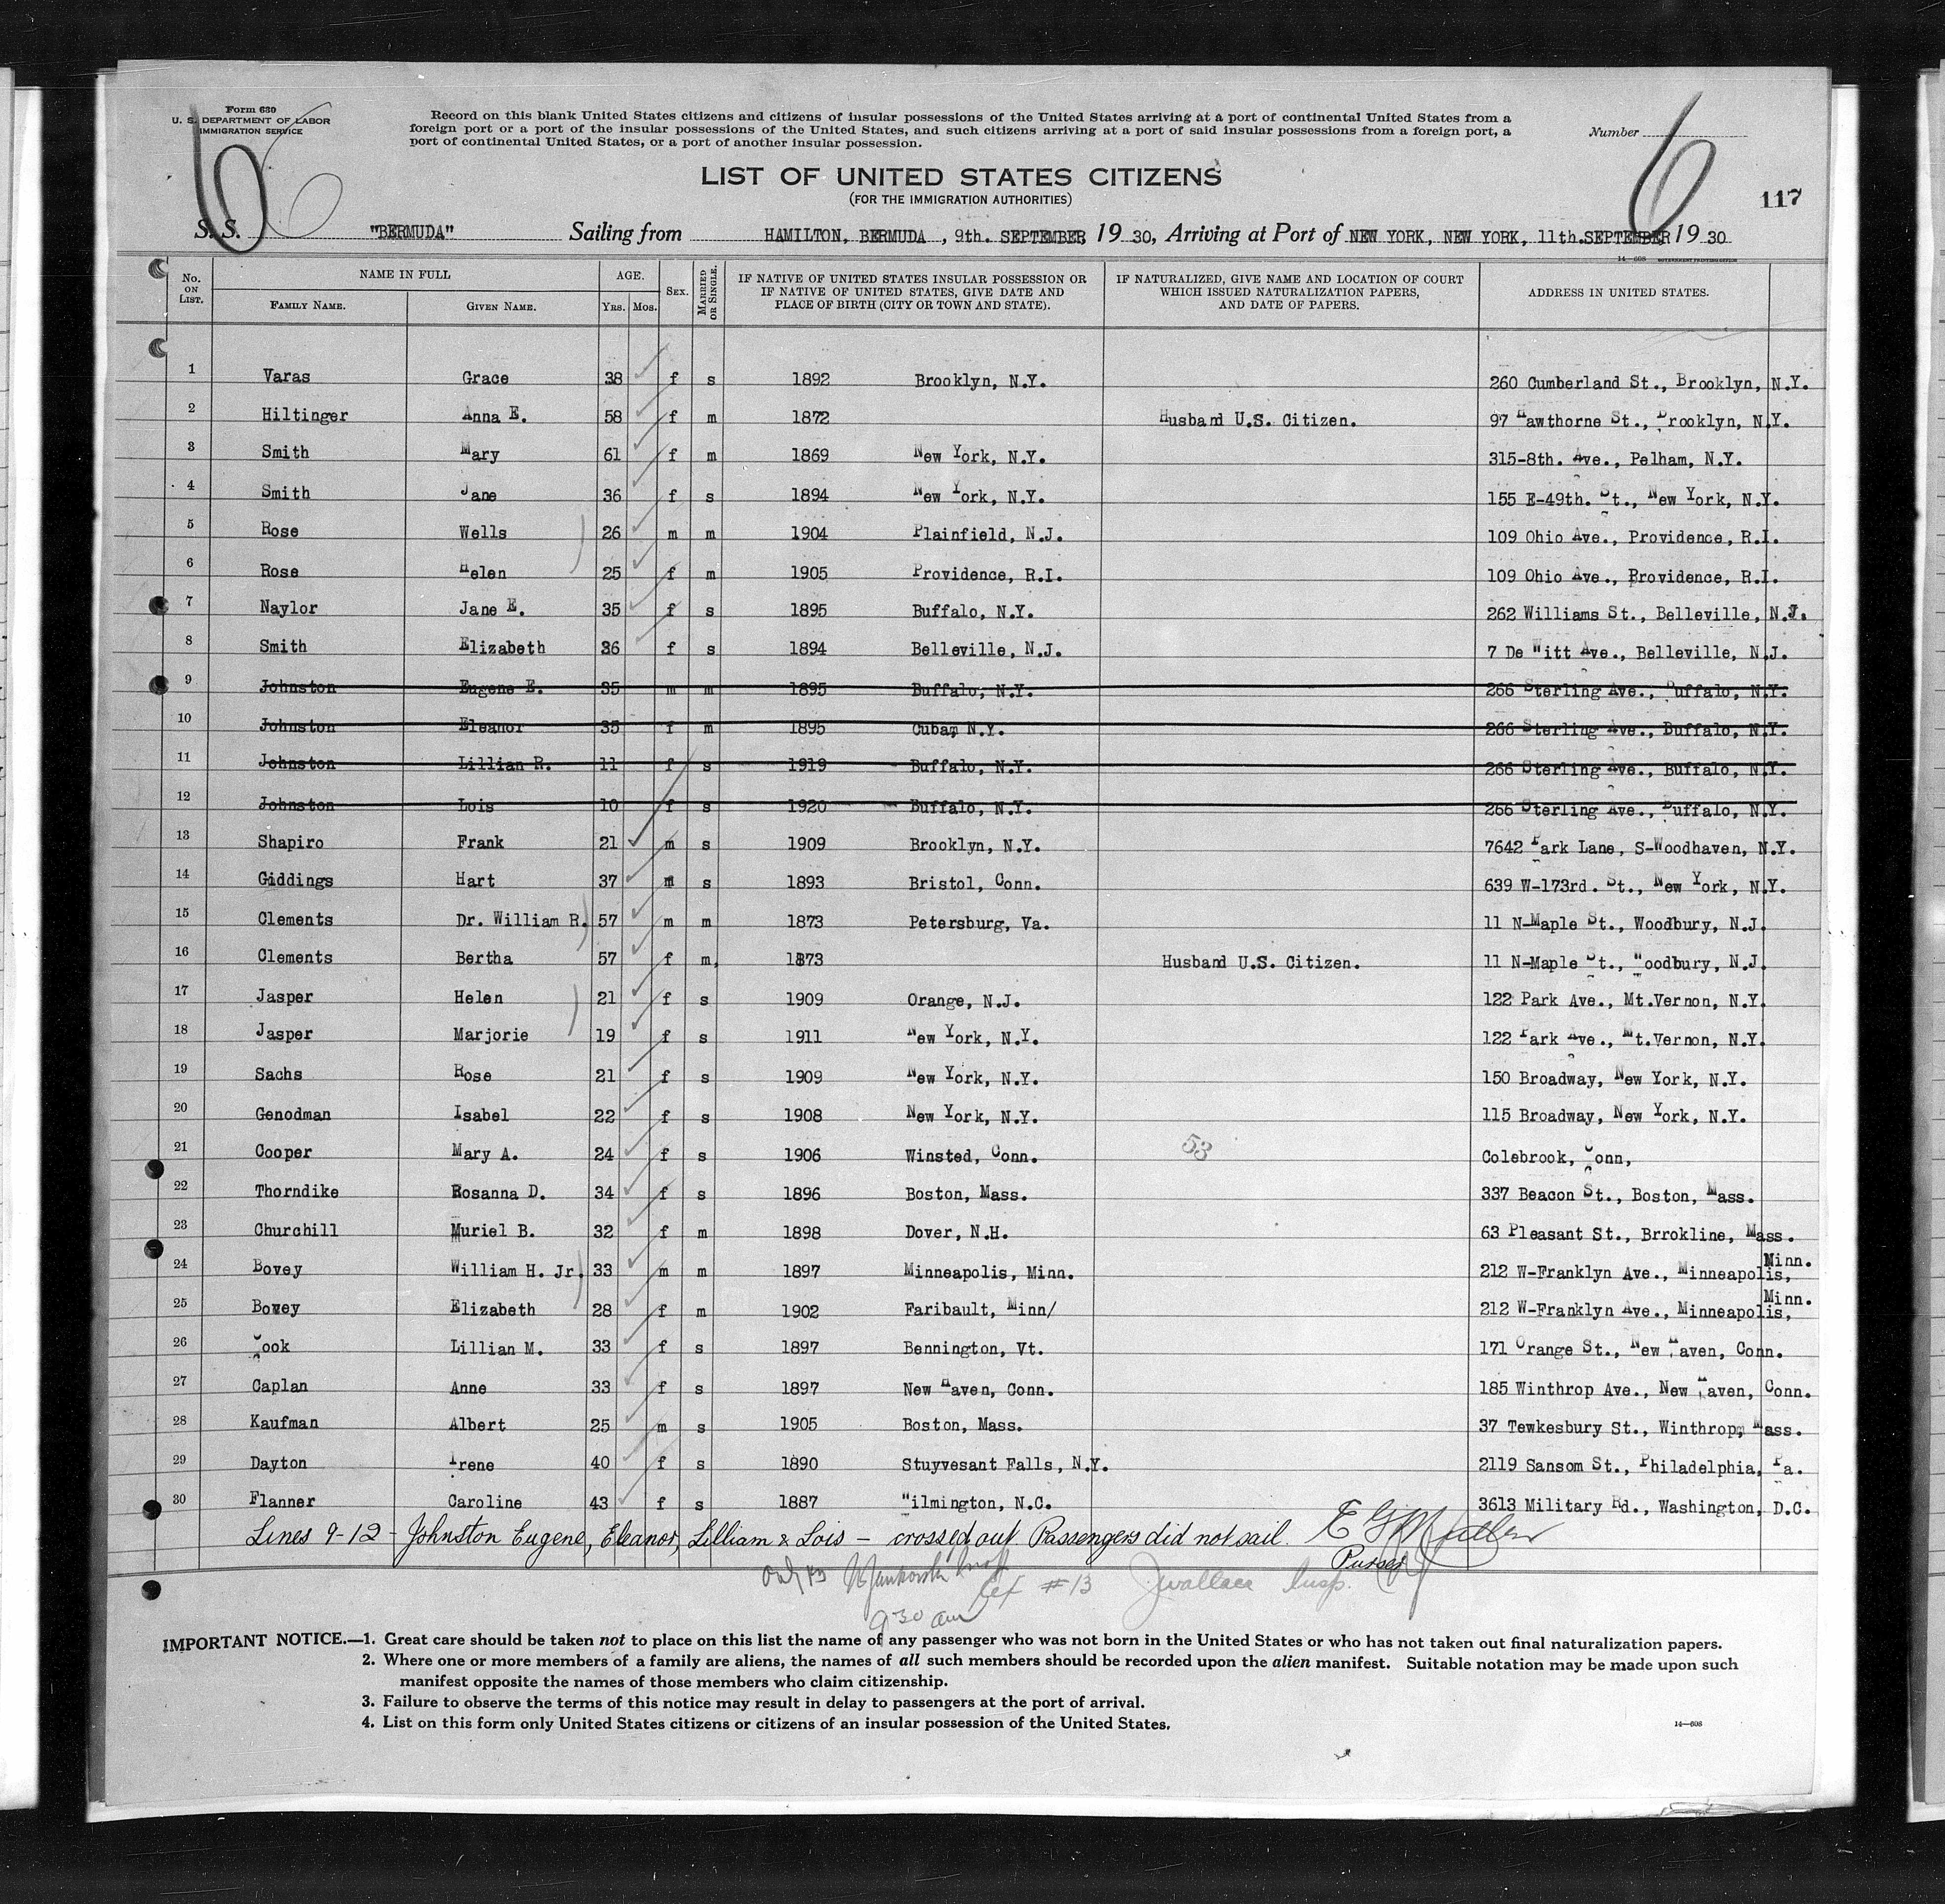 Form 630
U. S. DEPARTMENT OF LABOR
IMMIGRATION SERVICE
Record on this blank United States citizens and citizens of insular possessions of the United States arriving at a port of continental United States from a
foreign port or a port of the insular possessions of the United States, and such citizens arriving at a port of said insular possessions from a foreign port, a
port of continental United States, or a port of another insular possession.
Number
6 6
LIST OF UNITED STATES CITIZENS
(FOR THE IMMIGRATION AUTHORITIES)
117
S. S. "BERMUDA" Sailing from HAMILTON, BERMUDA, 9th. SEPTEMBER, 1930, Arriving at Port of NEW YORK, NEW YORK, 11th. SEPTEMBER 1930
14—608 GOVERNMENT PRINTING OFFICE
No. ON LIST. NAME IN FULL FAMILY NAME. GIVEN NAME. AGE. Yrs. Mos. SEX. MARRIED OR SINGLE. IF NATIVE OF UNITED STATES INSULAR POSSESSION OR IF NATIVE OF UNITED STATES, GIVE DATE AND PLACE OF BIRTH (CITY OR TOWN AND STATE). IF NATURALIZED, GIVE NAME AND LOCATION OF COURT WHICH ISSUED NATURALIZATION PAPERS, AND DATE OF PAPERS. ADDRESS IN UNITED STATES.
1 Varas Grace 38 f s 1892 Brooklyn, N.Y. 260 Cumberland St., Brooklyn, N.Y.
2 Hiltinger Anna E. 58 f m 1872 Husband U.S. Citizen. 97 Hawthorne St., Brooklyn, N.Y.
3 Smith Mary 61 f m 1869 New York, N.Y. 315-8th. Ave., Pelham, N.Y.
4 Smith Jane 36 f s 1894 New York, N.Y. 155 E-49th. St., New York, N.Y.
5 Rose Wells 26 m m 1904 Plainfield, N.J. 109 Ohio Ave., Providence, R.I.
6 Rose Helen 25 f m 1905 Providence, R.I. 109 Ohio Ave., Providence, R.I.
7 Naylor Jane E. 35 f s 1895 Buffalo, N.Y. 262 Williams St., Belleville, N.J.
8 Smith Elizabeth 36 f s 1894 Belleville, N.J. 7 De Witt Ave., Belleville, N.J.
9 Johnston Eugene E. 35 m m 1895 Buffalo, N.Y. 266 Sterling Ave., Buffalo, N.Y.
10 Johnston Eleanor 35 f m 1895 Cuba, N.Y. 266 Sterling Ave., Buffalo, N.Y.
11 Johnston Lillian R. 11 f s 1919 Buffalo, N.Y. 266 Sterling Ave., Buffalo, N.Y.
12 Johnston Lois 10 f s 1920 Buffalo, N.Y. 266 Sterling Ave., Buffalo, N.Y.
13 Shapiro Frank 21 m s 1909 Brooklyn, N.Y. 7642 Park Lane, S-Woodhaven, N.Y.
14 Giddings Hart 37 m s 1893 Bristol, Conn. 639 W-173rd. St., New York, N.Y.
15 Clements Dr. William R. 57 m m 1873 Petersburg, Va. 11 N-Maple St., Woodbury, N.J.
16 Clements Bertha 57 f m. 1873 Husband U.S. Citizen. 11 N-Maple St., Woodbury, N.J.
17 Jasper Helen 21 f s 1909 Orange, N.J. 122 Park Ave., Mt.Vernon, N.Y.
18 Jasper Marjorie 19 f s 1911 New York, N.Y. 122 Park Ave., Mt.Vernon, N.Y.
19 Sachs Rose 21 f s 1909 New York, N.Y. 150 Broadway, New York, N.Y.
20 Genodman Isabel 22 f s 1908 New York, N.Y. 115 Broadway, New York, N.Y.
21 Cooper Mary A. 24 f s 1906 Winsted, Conn. 53 Colebrook, Conn,
22 Thorndike Rosanna D. 34 f s 1896 Boston, Mass. 337 Beacon St., Boston, Mass.
23 Churchill Muriel B. 32 f m 1898 Dover, N.H. 63 Pleasant St., Brrokline, Mass.
24 Bovey William H. Jr 33 m m 1897 Minneapolis, Minn. 212 W-Franklyn Ave., Minneapolis, Minn.
25 Bovey Elizabeth 28 f m 1902 Faribault, Minn/ 212 W-Franklyn Ave., Minneapolis, Minn.
26 Cook Lillian M. 33 f s 1897 Bennington, Vt. 171 Orange St., New Haven, Conn.
27 Caplan Anne 33 f s 1897 New Haven, Conn. 185 Winthrop Ave., New Haven, Conn.
28 Kaufman Albert 25 m s 1905 Boston, Mass. 37 Tewkesbury St., Winthrop, Mass.
29 Dayton Irene 40 f s 1890 Stuyvesant Falls, N.Y. 2119 Sansom St., Philadelphia, Pa.
30 Flanner Caroline 43 f s 1887 Wilmington, N.C. 3613 Military Rd., Washington, D.C.
Lines 9-12 - Johnston Eugene, Eleanor, Lilliam & Lois - crossed out. Passengers did not sail.
Purser
# 13 J Wallace Insp.
9 30 am
IMPORTANT NOTICE.—1. Great care should be taken not to place on this list the name of any passenger who was not born in the United States or who has not taken out final naturalization papers.
2. Where one or more members of a family are aliens, the names of all such members should be recorded upon the alien manifest. Suitable notation may be made upon such
manifest opposite the names of those members who claim citizenship.
3. Failure to observe the terms of this notice may result in delay to passengers at the port of arrival.
4. List on this form only United States citizens or citizens of an insular possession of the United States.
14—608